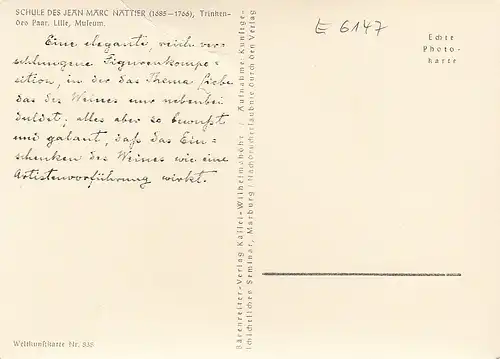 SCHULE DES JEAN MARC NATTIER (1685—1766), Trinken-
des Paar. Lille, Museum.
Eine elegante reich ver-
schlungene Figurenkompo-
sition, in der das Thema Liebe
das des Weines nur nebenbei
duldet; alles aber so bewußt
und galant, daß das Ein-
schenken des Weines wie eine
Artistenvorführung wirkt.
Weltkunstkarte Nr. 835
Bärenreiter-Verlag Kassel-Wilhelmshöhe / Aufnahme Kunstge-
schichtliches Seminar, Marburg / Nachdruck erlaubnis durch den Verlag
E 6147
Echte
Photo-
karte